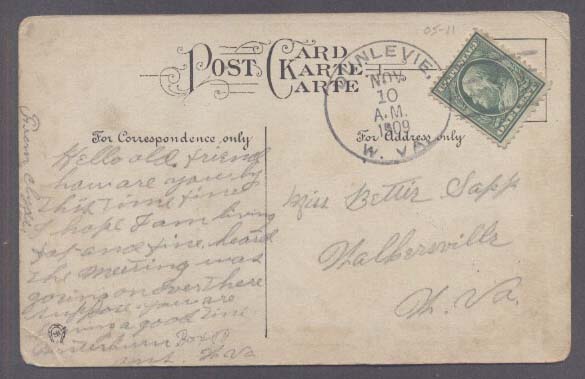 05-11
POST CARD
KARTE
CARTE
DUNLEVIE,
NOV
10
A.M.
1909
W. VA.
For Correspondence only
For Address only
Hello old friend
how are you by
this time fine
I hope I am living
fat and fine, heard
the meeting was
going on over there
suppose you are
a good time
Box
W. Va
From Clyde
Miss Bettie Sapp
Walkersville
W. Va.